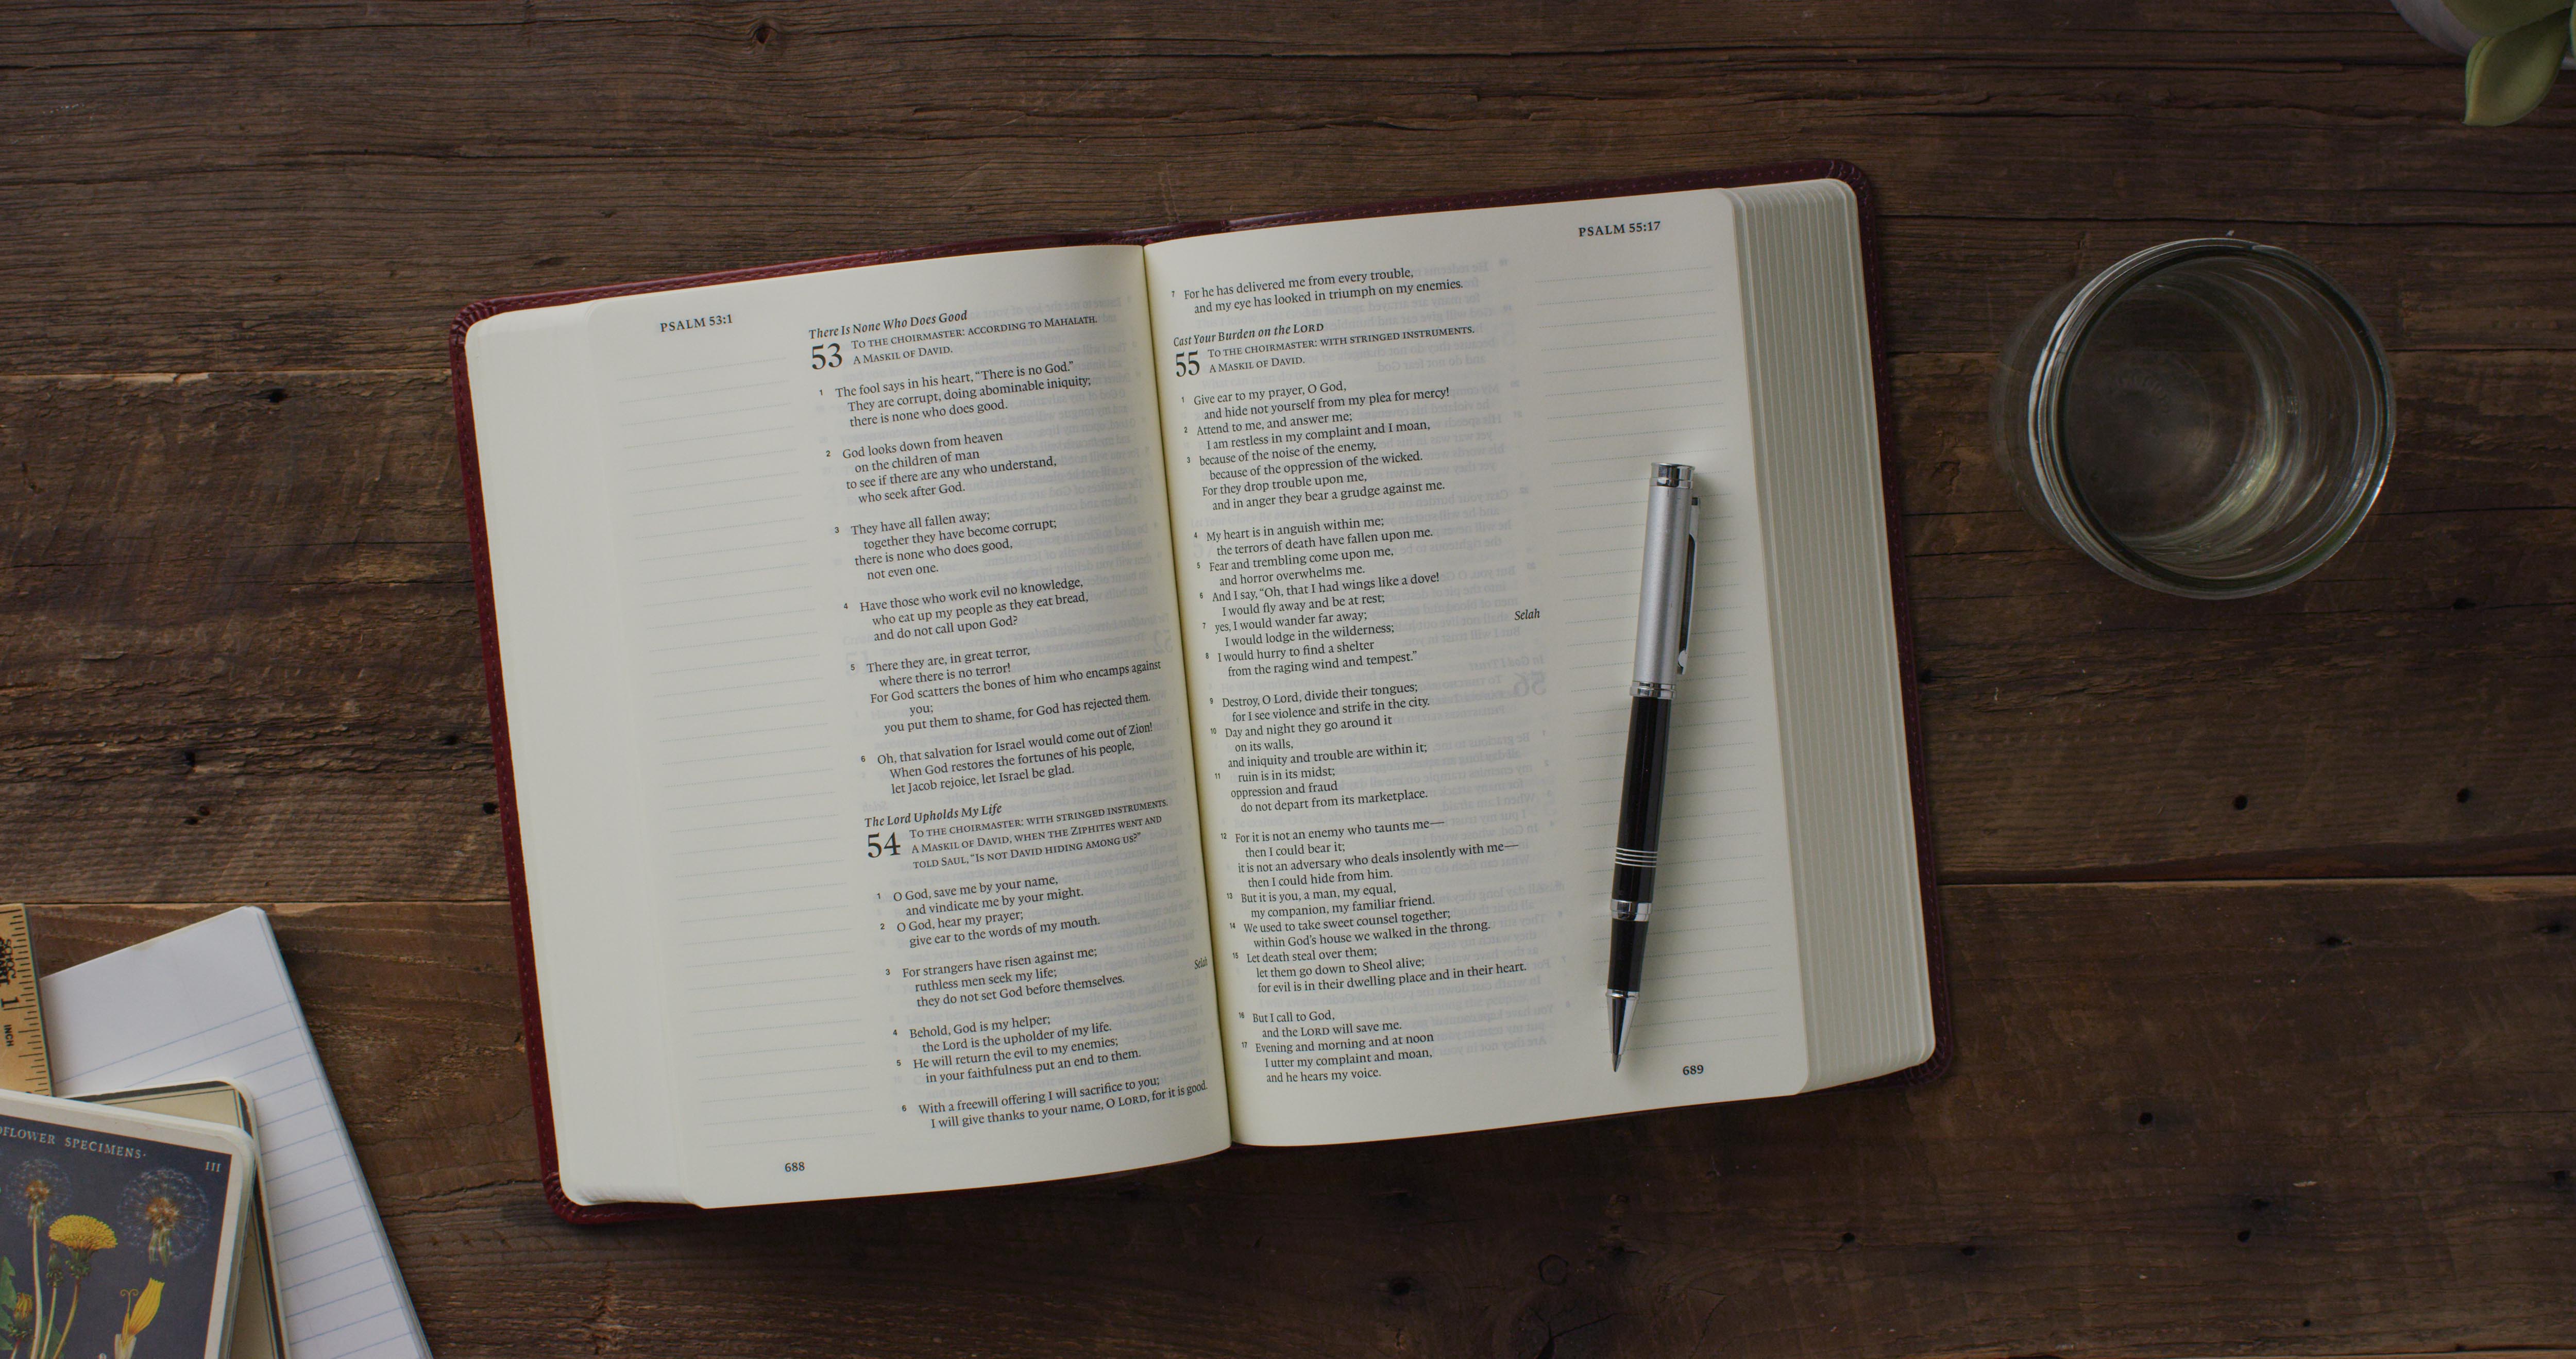 PSALM 53:1
There Is None Who Does Good
53 TO THE CHOIRMASTER: ACCORDING TO MAHALATH.
A MASKIL OF DAVID.
1 The fool says in his heart, “There is no God.”
They are corrupt, doing abominable iniquity;
there is none who does good.
2 God looks down from heaven
on the children of man
to see if there are any who understand,
who seek after God.
3 They have all fallen away;
together they have become corrupt;
there is none who does good,
not even one.
4 Have those who work evil no knowledge,
who eat up my people as they eat bread,
and do not call upon God?
5 There they are, in great terror,
where there is no terror!
For God scatters the bones of him who encamps against
you;
you put them to shame, for God has rejected them.
6 Oh, that salvation for Israel would come out of Zion!
When God restores the fortunes of his people,
let Jacob rejoice, let Israel be glad.
The Lord Upholds My Life
54 TO THE CHOIRMASTER: WITH STRINGED INSTRUMENTS.
A MASKIL OF DAVID, WHEN THE ZIPHITES WENT AND
TOLD SAUL, “IS NOT DAVID HIDING AMONG US?”
1 O God, save me by your name,
and vindicate me by your might.
2 O God, hear my prayer;
give ear to the words of my mouth.
3 For strangers have risen against me;
ruthless men seek my life;
they do not set God before themselves. Selah
4 Behold, God is my helper;
the Lord is the upholder of my life.
5 He will return the evil to my enemies;
in your faithfulness put an end to them.
6 With a freewill offering I will sacrifice to you;
I will give thanks to your name, O LORD, for it is good.
688
PSALM 55:17
7 For he has delivered me from every trouble,
and my eye has looked in triumph on my enemies.
Cast Your Burden on the LORD
55 TO THE CHOIRMASTER: WITH STRINGED INSTRUMENTS.
A MASKIL OF DAVID.
1 Give ear to my prayer, O God,
and hide not yourself from my plea for mercy!
2 Attend to me, and answer me;
I am restless in my complaint and I moan,
3 because of the noise of the enemy,
because of the oppression of the wicked.
For they drop trouble upon me,
and in anger they bear a grudge against me.
4 My heart is in anguish within me;
the terrors of death have fallen upon me.
5 Fear and trembling come upon me,
and horror overwhelms me.
6 And I say, “Oh, that I had wings like a dove!
I would fly away and be at rest;
7 yes, I would wander far away;
I would lodge in the wilderness; Selah
8 I would hurry to find a shelter
from the raging wind and tempest.”
9 Destroy, O Lord, divide their tongues;
for I see violence and strife in the city.
10 Day and night they go around it
on its walls,
and iniquity and trouble are within it;
11 ruin is in its midst;
oppression and fraud
do not depart from its marketplace.
12 For it is not an enemy who taunts me—
then I could bear it;
it is not an adversary who deals insolently with me—
then I could hide from him.
13 But it is you, a man, my equal,
my companion, my familiar friend.
14 We used to take sweet counsel together;
within God’s house we walked in the throng.
15 Let death steal over them;
let them go down to Sheol alive;
for evil is in their dwelling place and in their heart.
16 But I call to God,
and the LORD will save me.
17 Evening and morning and at noon
I utter my complaint and moan,
and he hears my voice.
689
1 INCH
SPECIMENS·
III